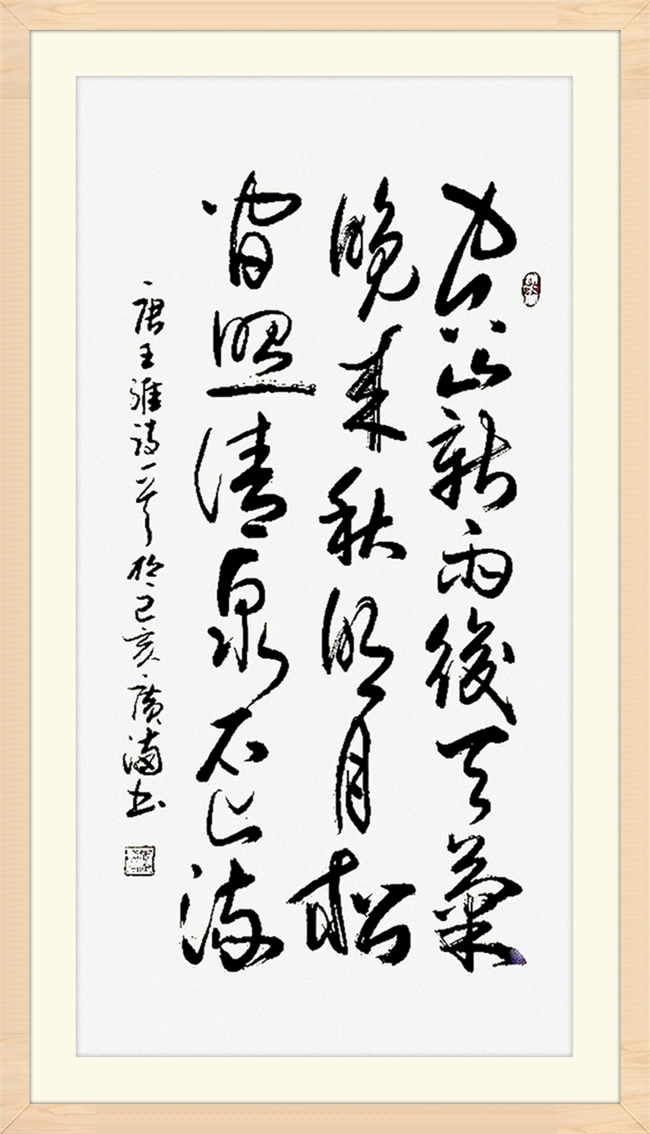 空山新雨後天氣
晚来秋明月松
間照清泉石上流
唐王維诗一首於己亥廣满书